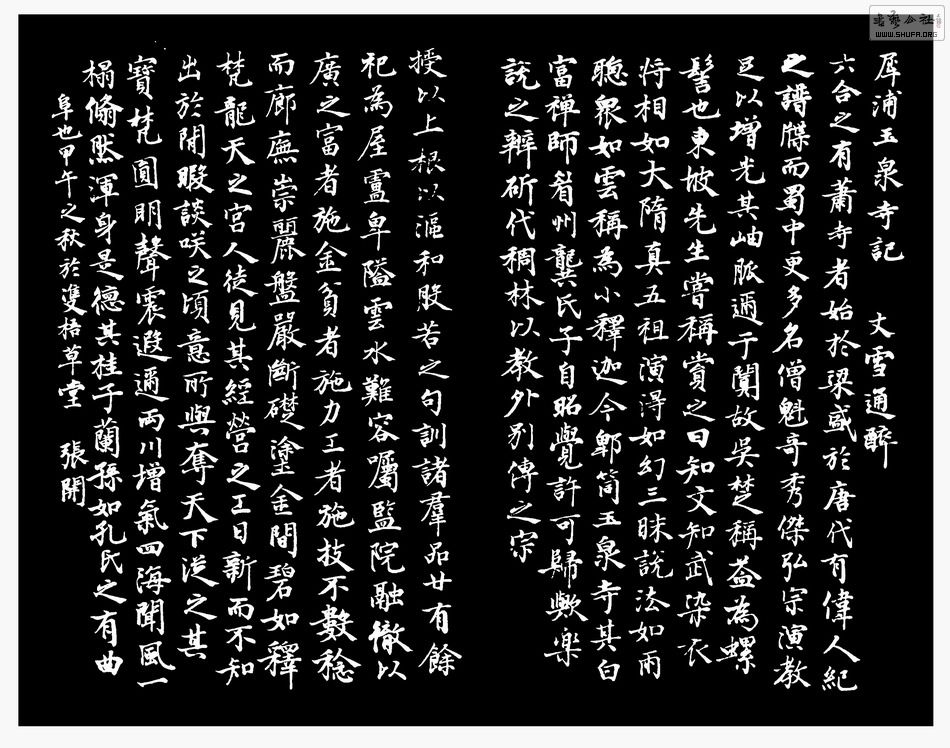 犀浦玉泉寺記 丈雪通醉
六合之有蕭寺者始於梁盛於唐代有偉人紀
之譜牒而蜀中更多名僧魁奇秀傑弘宗演教
足以增光其岫脈邇于闐故吳楚稱蓋為螺
髻也東坡先生嘗稱賞之曰知文知武染衣
將相如大隋真五祖演得如幻三昧說法如雨
聽眾如雲稱為小釋迦今郫筒玉泉寺其白
富禅師眉州龔氏子自昭覺許可歸歟樂
說之辯斫代稠林以教外別傳之宗
授以上根以漚和般若之句訓諸羣品廿有餘
祀為屋盧卑隘雲水難容囑監院融徹以
廣之富者施金貧者施力工者施技不數稔
而廊廡崇麗盤嚴斷礎塗金間碧如釋
梵龍天之宮人徒見其經營之工日新而不知
出於閒暇談咲之頃意所與奪天下從之其
寶梵圓明聲震遐邇兩川增氣四海聞風一
榻翛然渾身是德其桂子蘭孫如孔氏之有曲
阜也甲午之秋於雙梧草堂 張開
書藝公社
WWW.SHUFA.ORG